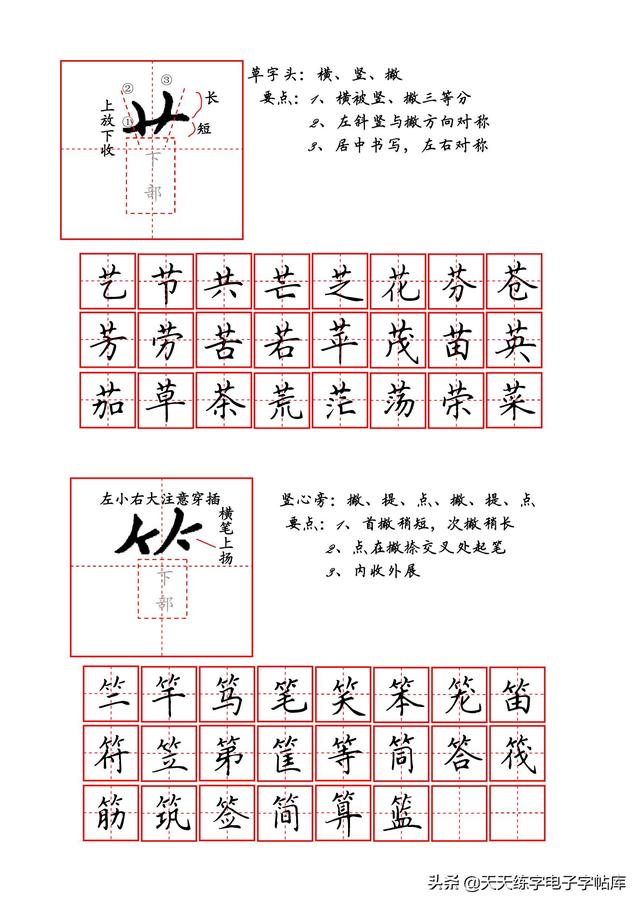 草字头：横、竖、撇
要点：1、横被竖、撇三等分
2、左斜竖与撇方向对称
3、居中书写，左右对称
上放下收
①
②
③
长
短
下部
艺节共芒芝花芬苍
芳劳苦若苹茂苗英
茄草茶荒茫荡荣菜
左小右大注意穿插
横笔上扬
下部
竖心旁：撇、提、点、撇、提、点
要点：1、首撇稍短，次撇稍长
2、点在撇捺交叉处起笔
3、内收外展
竺竿笃笔笑笨笼笛
符笠第筐等筒答筏
筋筑签简算篮
头条 @天天练字电子字帖库